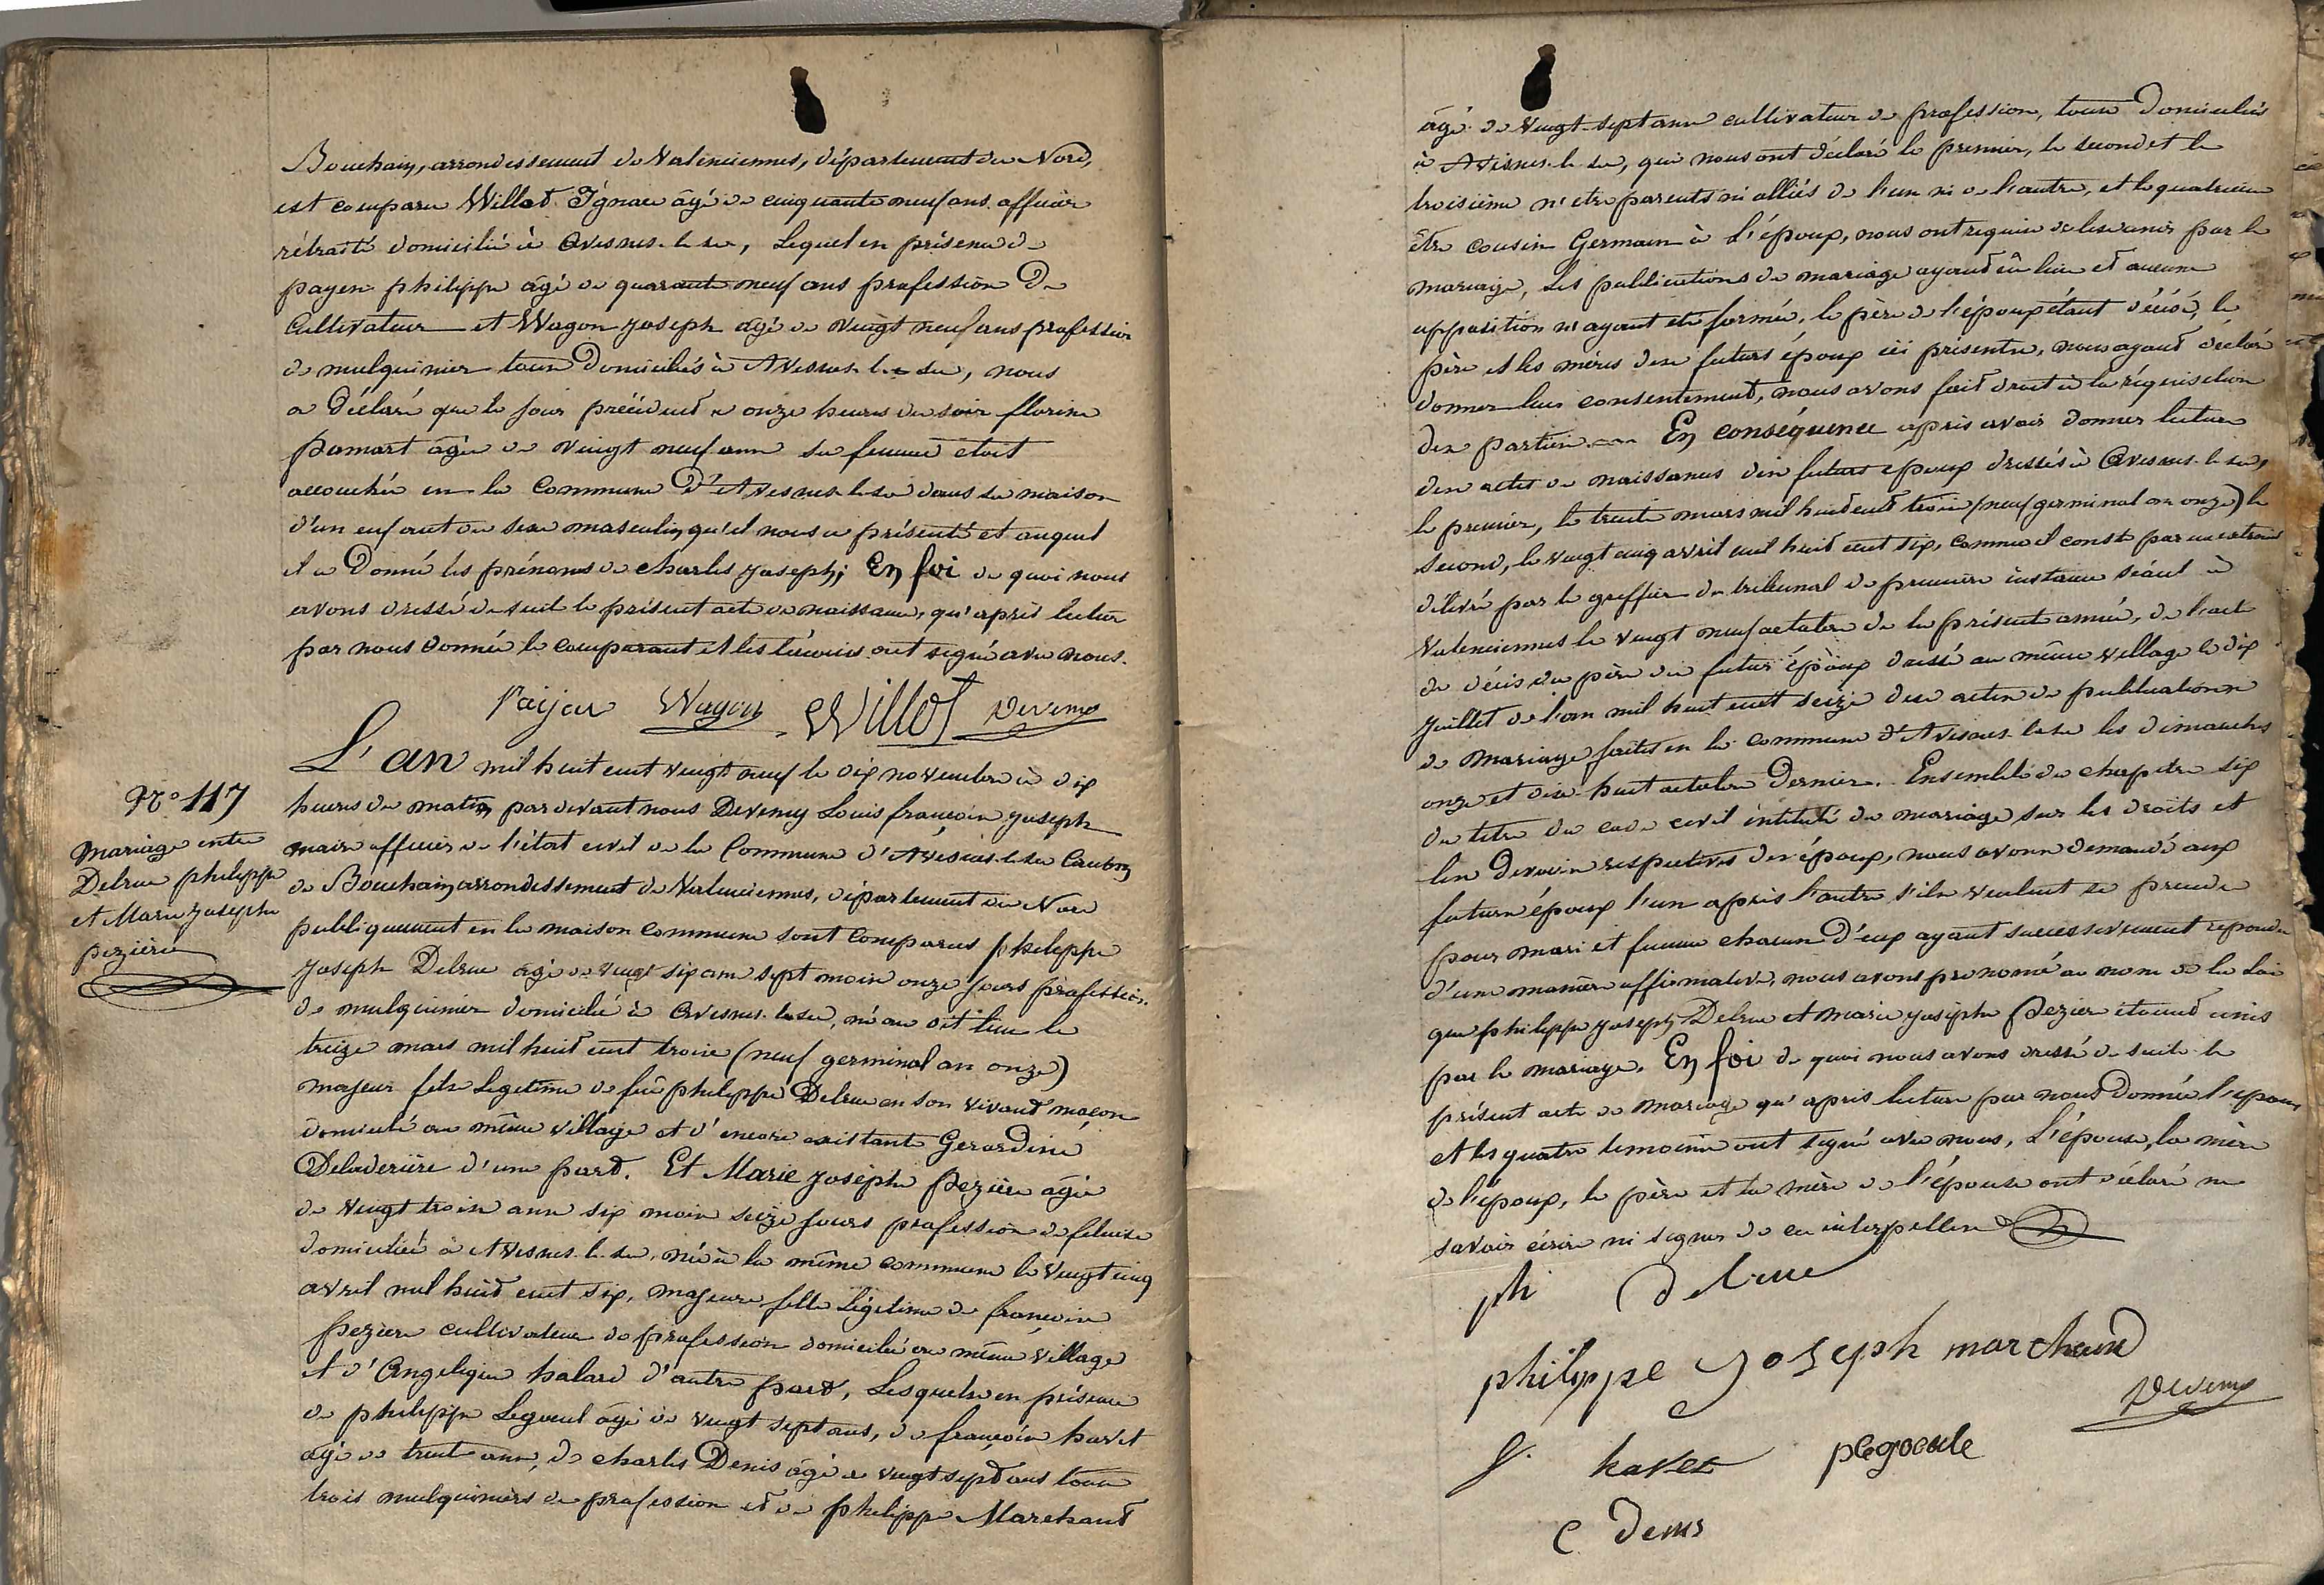 Bouchain, arrondissement de Valenciennes, département du Nord,
est comparu Willot Ignace âgé de cinquante neuf ans officier
rétraité domicilié à Avesnes-le-sec, Lequel en présence de
payen philippe âgé de quarante neuf ans profession De
Cultivateur et Wagon Joseph âgé de vingt neuf ans profession
de mulquinier tous Domiciliés à Avesnes-le-sec, nous
a Déclaré que le jour précédent à onze heures du soir florine
pamart âgée de vingt neuf ans sa femme étoit
accouchée en la Commune d'Avesnes-le-sec dans sa maison
d'un enfant du sexe masculin, qu'il nous a présenté et auquel
il a Donné les prénoms de charles Joseph; En foi de quoi nous
avons dressé de suite le présent acte de naissance, qu'après lecture
par nous donnée le comparant et les témoins ont signé avec nous.
Paijen Wagon Willot Devemy
L'an mil huit cent vingt neuf le dix novembre à dix
heures du matin par devant nous Devemy Louis françois Joseph
maire officier de l'état civil de la Commune d'Avesnes-le-sec Canton
de Bouchain, arrondissement de Valenciennes, département du Nord
publiquement en la maison commune sont comparus philippe
Joseph Delrue âgé de vingt six ans sept mois onze jours profession
de mulquinier domicilié à Avesnes-le-sec, né au dit lieu le
treize mars mil huit cent trois (neuf germinal an onze)
majeur fils Legitime de feû philippe Delrue en son vivant maçon
domicilié au même village et d'encore existante Gerardine
Deladerière d'une part. Et Marie Josephe pezière âgée
de vingt trois ans six mois seize jours profession de fileuse
domiciliée à Avesnes-le-sec, née à la même commune le vingt cinq
avril mil huit cent six, majeure fille Légitime de françois
peziere cultivateur de profession domicilié au même village
et d'Angelique halard d'autre part, Lesquels en présence
de philippe Legoeul âgé de vingt sept ans, de françois havet
âgé de trente ans, de charles Denis âgé de vingt sept ans tous
trois mulquiniers de profession et de philippe Marchant
N° 117
Mariage entre
Delrue philippe
et Marie Josephe
pezière
âgé de vingt-sept ans cultivateur de profession, tous Domiciliés
à Avesnes-le-sec, qui nous ont déclaré le premier, le second et le
troisième n'etre parents ni alliés de l'un ni de l'autre, et le quatrième
être cousin Germain à L'époux, nous ont requis de les unir par le
mariage, Les publications de mariage ayant eû lieu et aucune
opposition n'ayant été formée, le père de l'époux étant décédé, le
père et les mères des futurs époux ici présents, nous ayant déclaré
donner leur consentement, nous avons fait droit à la réquisition
des parties. En conséquence après avoir donner lecture
des actes de naissances des futurs époux dressés à Avesnes-le-sec,
le premier, le trente mars mil huit cent trois (neuf germinal an onze) le
second, le vingt cinq avril mil huit cent six, comme il conste par un extrait
délivré par le greffier du tribunal de première instance séant à
Valenciennes le vingt neuf octobre de la présente année, de l'acte
de décès du père du futur époux dressé au même village le dix
juillet de l'an mil huit cent seize des actes de publications
de mariage faites en la commune d'Avesnes-le-sec les dimanches
onze et dix-huit octobre Dernier. Ensemble du chapitre six
du titre du code civil intitulé du mariage sur les droits et
les Devoirs respectives des époux, nous avons demandé aux
futurs époux l'un après l'autre s'ils veulent se prendre
pour mari et femme chacun d'eux ayant successivement repondu
d'une manière affirmative, nous avons prononcé au nom de la Loi
que philippe Joseph Delrue et marie Josephe pezier étoient unis
par le mariage. En foi de quoi nous avons dressé de suite le
présent acte de mariage qu'après lecture par nous Donnée l'époux
et les quatre temoins ont signé avec nous, L'épouse, la mère
de l'époux, le père et la mère de l'épouse ont déclaré ne
savoir écrire ni signer de ce interpellés
ph delrue
philippe Joseph marchand
Devemy
f. havet plegoeule
c denis